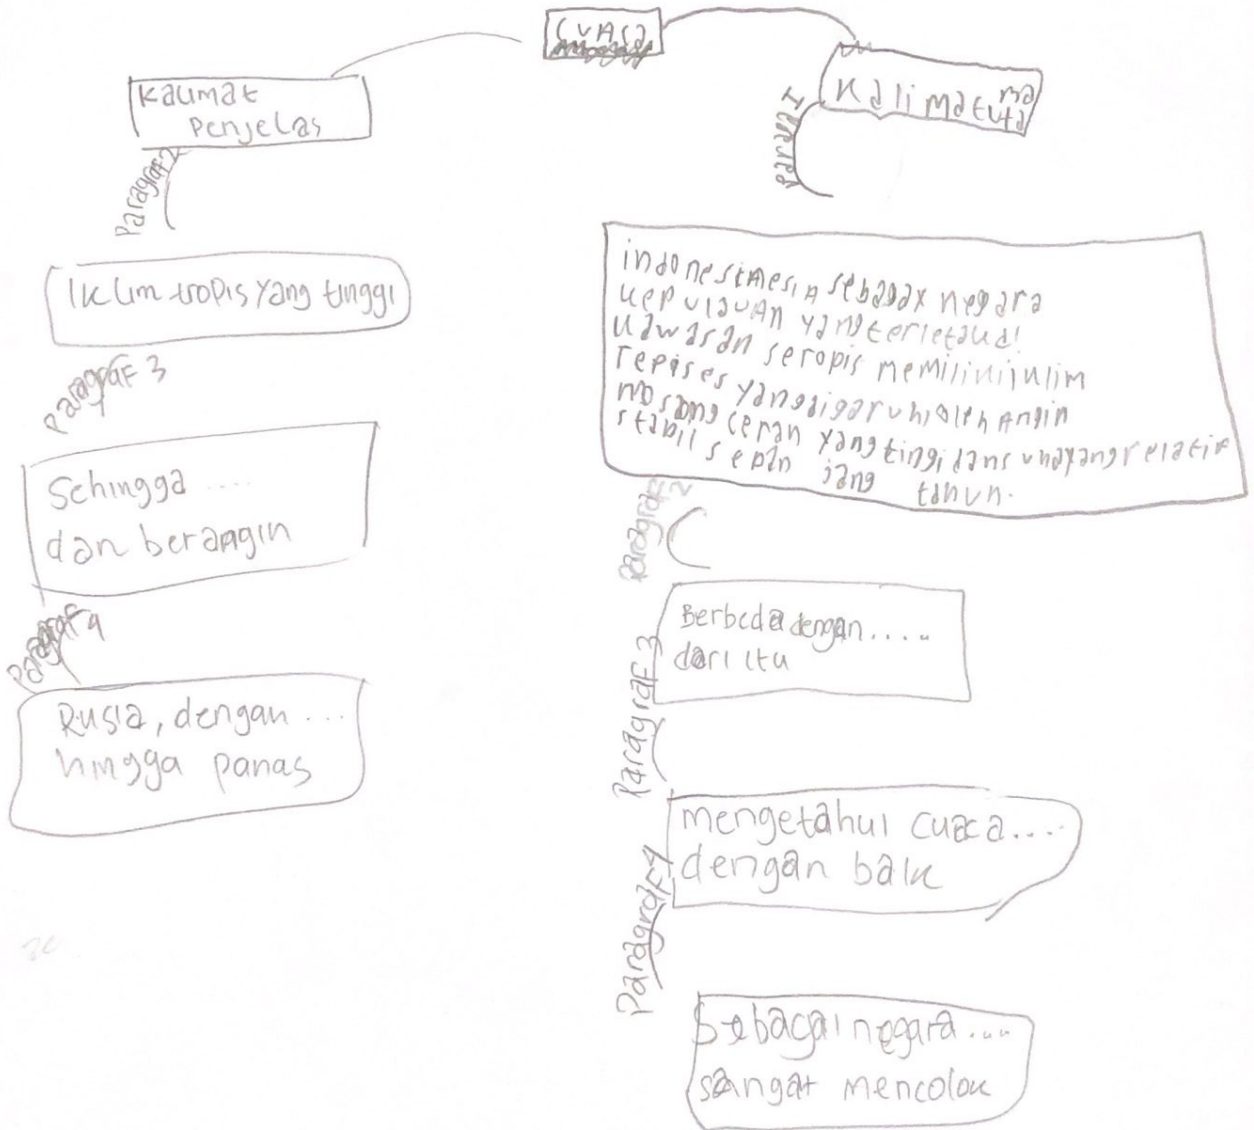 Cuaca
Kalimat
Penjelas
Paragraf 2
Iklim tropis yang tinggi
Paragraf 3
Sehingga ....
dan berangin
Paragraf 4
Rusia, dengan ...
hingga panas
Kalimat uta
ma
Paragraf 1
sebagax negara
kepulauan yang terletak di
kawasan seropis memiliki iklim
yang oleh Angin
yang tingi dan yang relatif
stabil sepan jang tahun.
Paragraf 2
Berbeda dengan .....
dari itu
Paragraf 3
mengetahui cuaca ....
dengan baik
Paragraf 4
Sebagai negara ....
sangat mencolok